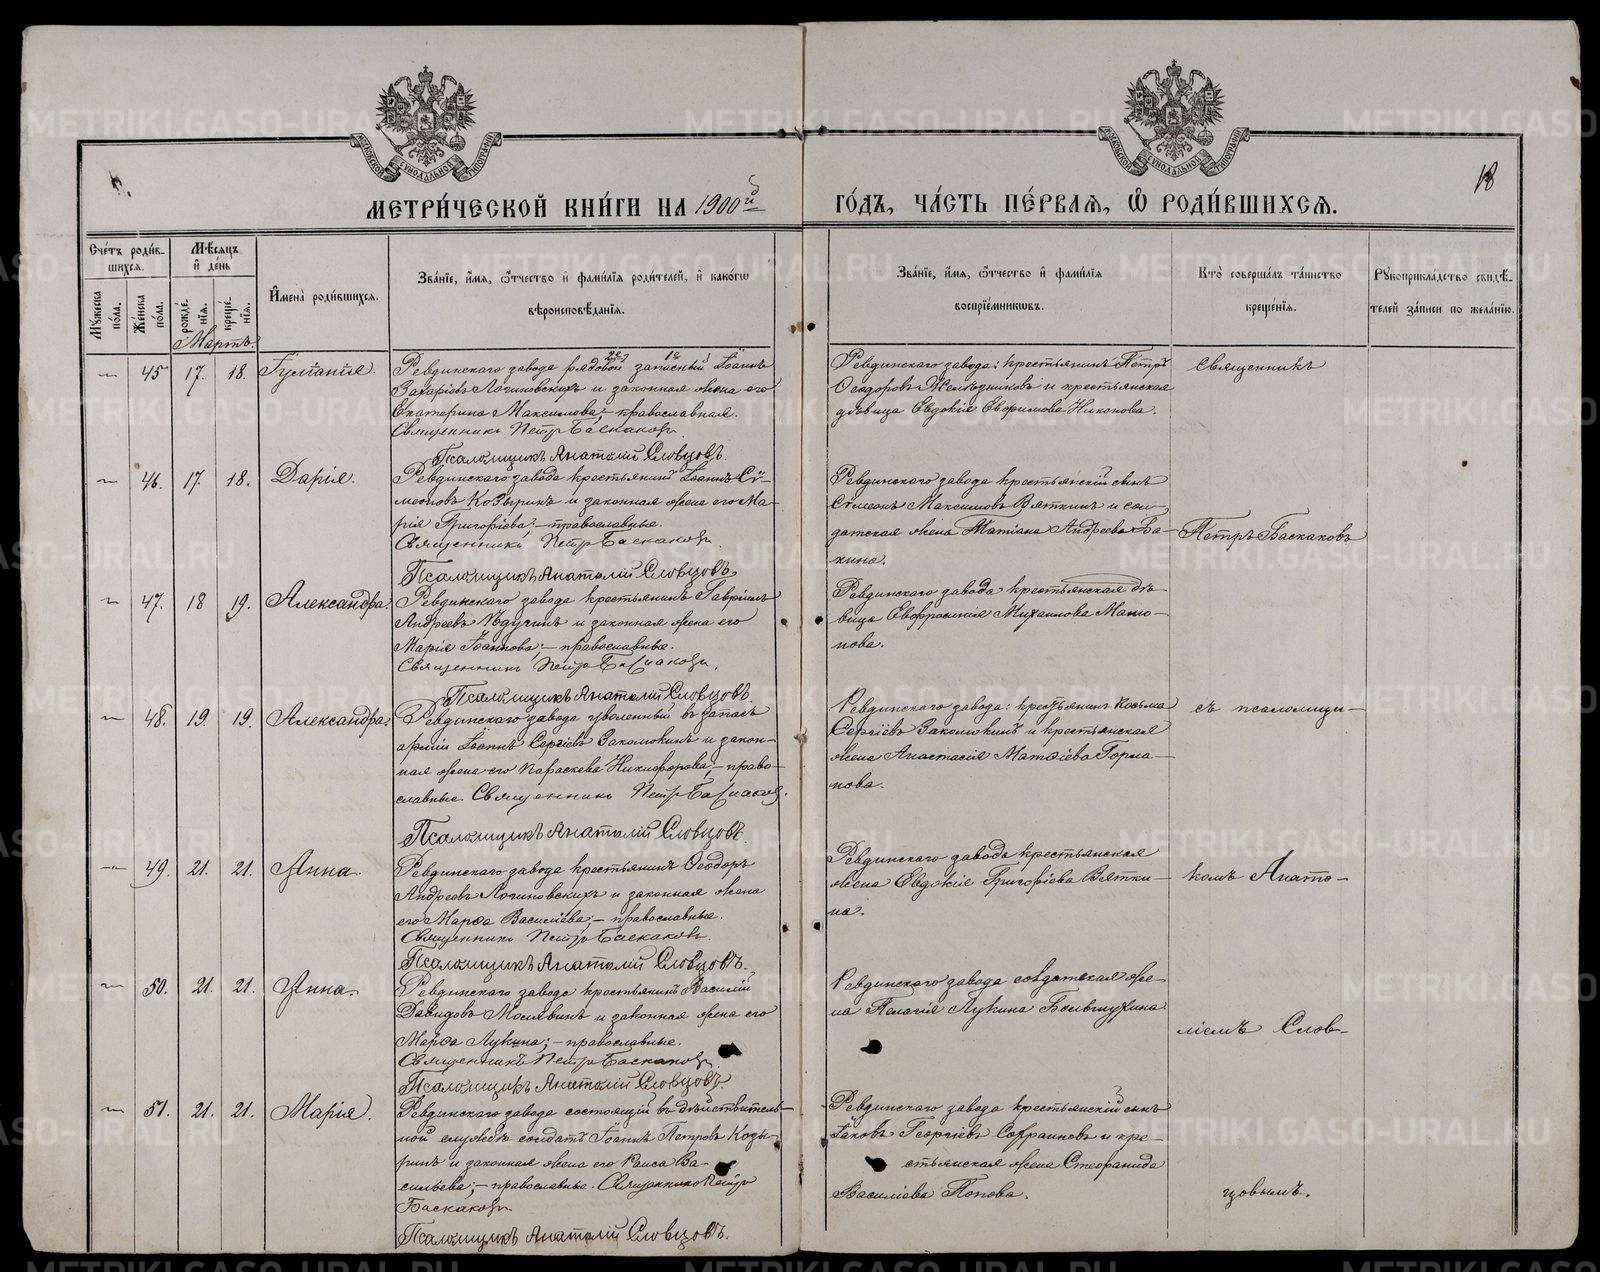 18
МЕТРИ́ЧЕСКОЙ КНИ́ГИ НА 1900й ГО́ДЪ, ЧА́СТЬ ПЕ́РВАѦ, Ѡ҆ РОДИ́ВШИХСѦ.
Сче́тъ роди́в-
шихсѧ.
Мꙋ́жеска по́ла.
Же́нска по́ла.
Мѣ́сѧцъ
и҆ де́нь
рожде́-нїѧ.
креще́-нїѧ.
И҆мена̀ роди́вшихсѧ.
Зва́нїе, и҆́мѧ, ѻ҆́тчество и҆ фами́лїѧ роди́телей, и҆ како́гѡ
вѣроисповѣ́данїѧ.
Зва́нїе, и҆́мѧ, ѻ҆́тчество и҆ фами́лїѧ
воспрїе́мникѡвъ.
Кто̀ соверша́лъ та́инство
креще́нїѧ.
Рꙋкоприкла́дство свидѣ́-
телей за́писи по жела́нїю.
Мартъ.
45 17. 18.
Ревдинскаго завода рядовой запасный Іоаннъ
Захаріевъ Логиновскихъ и законная жена его
Екатерина Максимова; – православная.
Священникъ Петръ Баскаковъ.
Псаломщикъ Анатолій Словцовъ.
Ревдинскаго завода: крестьянинъ Петръ
Ѳеодоровъ Желѣзниковъ и крестьянская
дѣвица Евдокія Евѳимова Никонова.
Священникъ
46. 17. 18. Дарія.
Ревдинскаго завода крестьянинъ Іоаннъ Си-
меоновъ Козыринъ и законная жена его Ма-
рія Григоріева; – православные.
Священникъ Петръ Баскаковъ.
Псаломщикъ Анатолій Словцовъ.
Ревдинскаго завода крестьянскій сынъ
Симеонъ Максимовъ Вяткинъ и сол-
датская жена Татіана Андреева Ба-
кина.
Петръ Баскаковъ
47. 18 19. Александра.
Ревдинскаго завода крестьянинъ Гавріилъ
Андреевъ и законная жена его
Марія Іоаннова; – православные.
Священникъ Петръ Баскаковъ.
Псаломщикъ Анатолій Словцовъ.
Ревдинскаго завода крестьянская дѣ-
вица Евфросинія Михаилова Мамо-
нова.
48. 19. 19. Александра.
Ревдинскаго завода уволенный въ запасъ
арміи Іоаннъ Сергіевъ Закомокинъ и закон-
ная жена его Параскева Никифорова; – право-
славные. Священникъ Петръ Баскаковъ.
Псаломщикъ Анатолій Словцовъ.
Ревдинскаго завода: крестьянинъ Козьма
Сергіевъ Закомокинъ и крестьянская
жена Анастасія Матѳіева Горма-
нова.
съ псаломщи-
49. 21. 21. Анна.
Ревдинскаго завода крестьянинъ Ѳеодоръ
Андреевъ Логиновскихъ и законная жена
его Марѳа Василіева; – православные.
Священникъ Петръ Баскаковъ.
Псаломщикъ Анатолій Словцовъ.
Ревдинскаго завода крестьянская
жена Евдокія Григоріева Вятки-
на.
комъ Анато-
50. 21. 21. Анна.
Ревдинскаго завода крестьянинъ Василій
Давидовъ Мосявинъ и законная жена его
Марѳа Лукина; – православные.
Священникъ Петръ Баскаковъ.
Псаломщикъ Анатолій Словцовъ.
Ревдинскаго завода солдатская же-
на Пелагія Лукина
ліемъ Слов-
51. 21. 21. Марія.
Ревдинскаго завода состоящій въ дѣйствитель-
ной службѣ солдатъ Іоаннъ Петровъ Козы-
ринъ и законная жена его Раиса Ва-
сильева; – православные. Священникъ Петръ
Баскаковъ.
Псаломщикъ Анатолій Словцовъ.
Ревдинскаго завода крестьянскій сынъ
Іаковъ Георгіевъ Софроновъ и кре-
стьянская жена Стефанида
Василіева Попова.
цовымъ.
METRIKI.GASO-URAL.RU